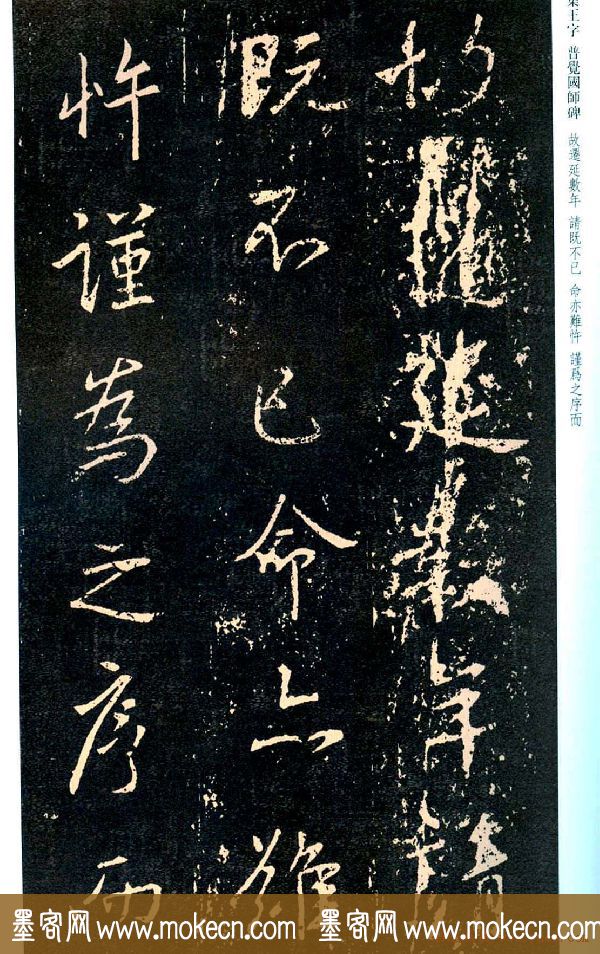 集王字 普覺國師碑 故遷延數年 請既不已 命亦難忤 謹爲之序而
故遷延數年請
既不已命亦難
忤謹為之序而
墨客网 www.mokecn.com 墨客网 www.mokecn.com